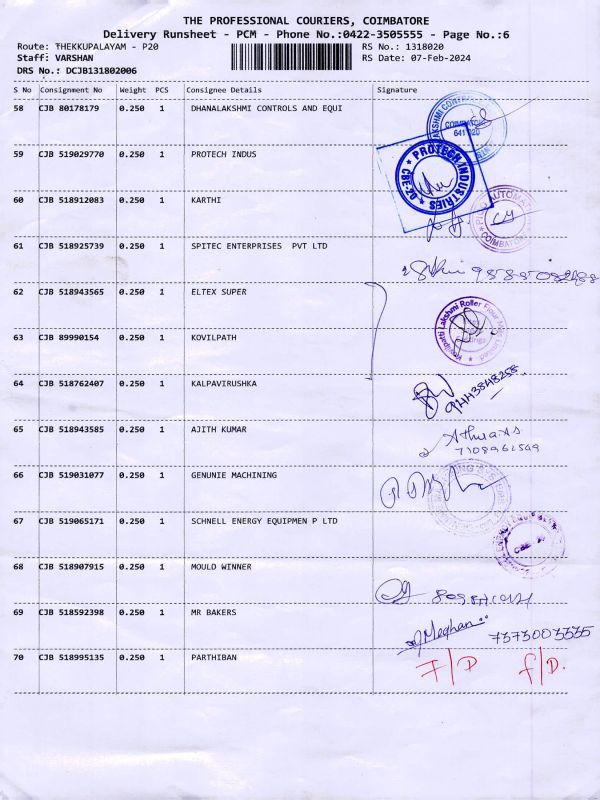 THE PROFESSIONAL COURIERS, COIMBATORE
Delivery Runsheet - PCM - Phone No.:0422-3505555 - Page No.:6
Route: THEKKUPALAYAM - P20 RS No.: 1318020
Staff: VARSHAN RS Date: 07-Feb-2024
DRS No.: DCJB131802006
S No Consignment No Weight PCS Consignee Details Signature
58 CJB 80178179 0.250 1 DHANALAKSHMI CONTROLS AND EQUI
COIMBATORE
641 020
59 CJB 519029770 0.250 1 PROTECH INDUS
PROTECH INDUSTRIES
CBE-20
60 CJB 518912083 0.250 1 KARTHI
COIMBATORE
61 CJB 518925739 0.250 1 SPITEC ENTERPRISES PVT LTD
62 CJB 518943565 0.250 1 ELTEX SUPER
Lakshmi Roller Flour
63 CJB 89990154 0.250 1 KOVILPATH
64 CJB 518762407 0.250 1 KALPAVIRUSHKA
65 CJB 518943585 0.250 1 AJITH KUMAR
66 CJB 519031077 0.250 1 GENUNIE MACHINING
67 CJB 519065171 0.250 1 SCHNELL ENERGY EQUIPMEN P LTD
68 CJB 518907915 0.250 1 MOULD WINNER
69 CJB 518592398 0.250 1 MR BAKERS
Meghan 7373003335
70 CJB 518995135 0.250 1 PARTHIBAN
F/D f/D.